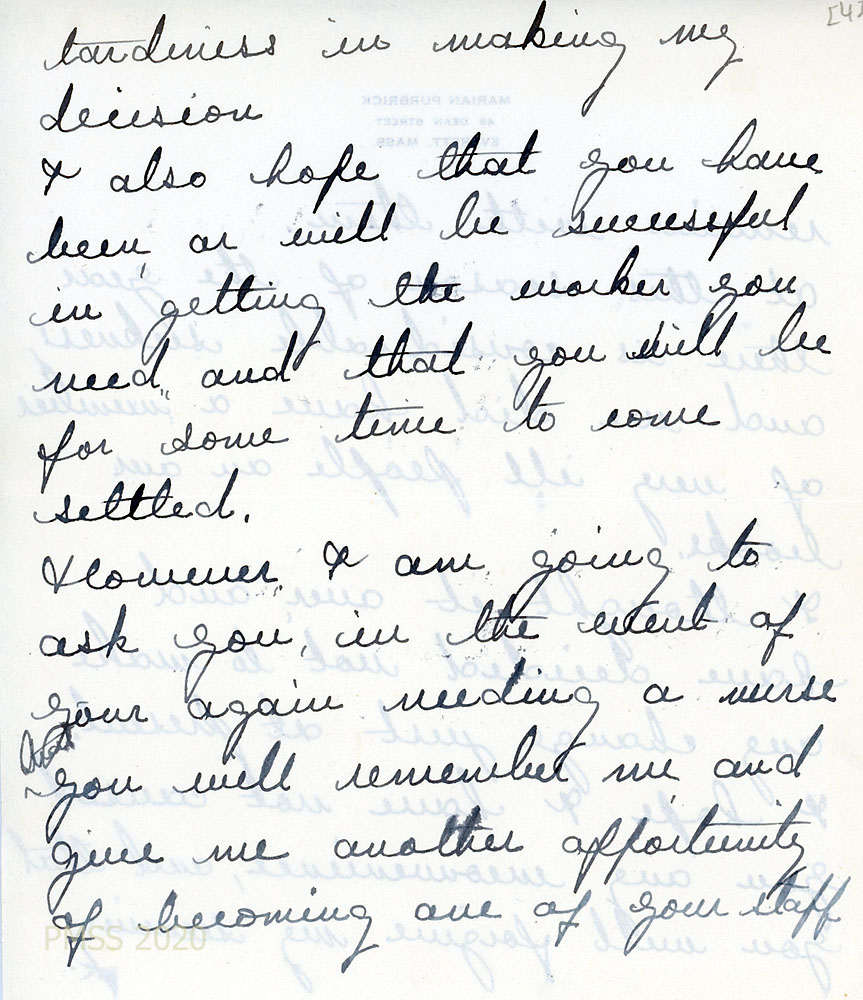 [4]
tardiness in making my
decision
I also hope that you have
been, or will be successful
in getting the worker you
need, and that you will be
for some time to come
settled.
However, I am going to
ask you, in the event of
your again needing a nurse
that
you will remember me and
give me another opportunity
of becoming one of your staff
PMSS 2020